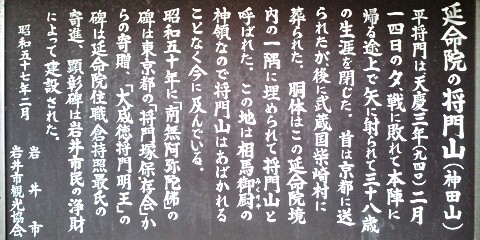 延命院の将門山(神田山)
平将門は天慶三年(九四〇)二月
一四日の夕、戦に敗れて本陣に
帰る途上で矢に射られて三十八歳
の生涯を閉じた。首は京都に送
られたが後に武蔵国柴崎村に
葬られた。胴体はこの延命院境
内の一隅に埋められて将門山と
呼ばれた。この地は相馬御厨の
みくりや
神領なので将門山はあばかれる
ことなく今に及んでいる。
昭和五十年に「南無阿弥陀佛」の
碑は東京都の「将門塚保存会」か
らの寄贈、「大威徳将門明王」の
碑は延命院住職倉持照最氏の
寄進、顕彰碑は岩井市民の浄財
によって建設された。
昭和五十七年二月
岩井市
岩井市観光協会